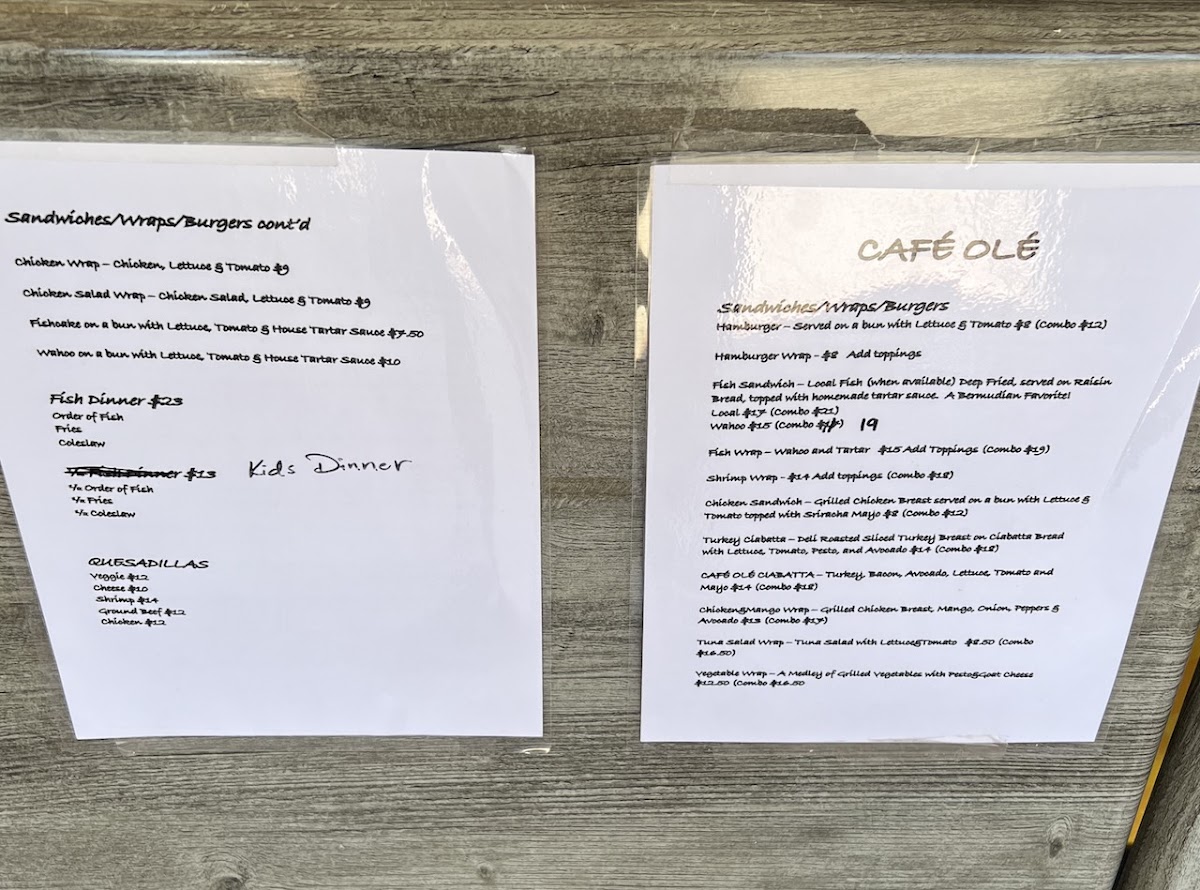 Sandwiches/Wraps/Burgers cont'd
Chicken Wrap – Chicken, Lettuce & Tomato $9
Chicken Salad Wrap – Chicken Salad, Lettuce & Tomato $9
Fishcake on a bun with Lettuce, Tomato & House Tartar Sauce $7.50
Wahoo on a bun with Lettuce, Tomato & House Tartar Sauce $10
Fish Dinner $23
Order of Fish
Fries
Coleslaw
½ Fish Dinner $13 Kids Dinner
½ Order of Fish
½ Fries
½ Coleslaw
QUESADILLAS
Veggie $12
Cheese $10
Shrimp $14
Ground Beef $12
Chicken $12
CAFÉ OLÉ
Sandwiches/Wraps/Burgers
Hamburger – Served on a bun with Lettuce & Tomato $8 (Combo $12)
Hamburger Wrap - $8 Add toppings
Fish Sandwich – Local Fish (when available) Deep Fried, served on Raisin
Bread, topped with homemade tartar sauce. A Bermudian Favorite!
Local $17 (Combo $21)
Wahoo $15 (Combo ) 19
Fish Wrap – Wahoo and Tartar $15 Add Toppings (Combo $19)
Shrimp Wrap - $14 Add toppings (Combo $18)
Chicken Sandwich – Grilled Chicken Breast served on a bun with Lettuce &
Tomato topped with Sriracha Mayo $8 (Combo $12)
Turkey Ciabatta – Deli Roasted Sliced Turkey Breast on Ciabatta Bread
with Lettuce, Tomato, Pesto, and Avocado $14 (Combo $18)
CAFÉ OLÉ CIABATTA – Turkey, Bacon, Avocado, Lettuce, Tomato and
Mayo $14 (Combo $18)
Chicken&Mango Wrap – Grilled Chicken Breast, Mango, Onion, Peppers &
Avocado $13 (Combo $17)
Tuna Salad Wrap – Tuna Salad with Lettuce&Tomato $8.50 (Combo
$16.50)
Vegetable Wrap – A Medley of Grilled Vegetables with Pesto&Goat Cheese
$12.50 (Combo $16.50